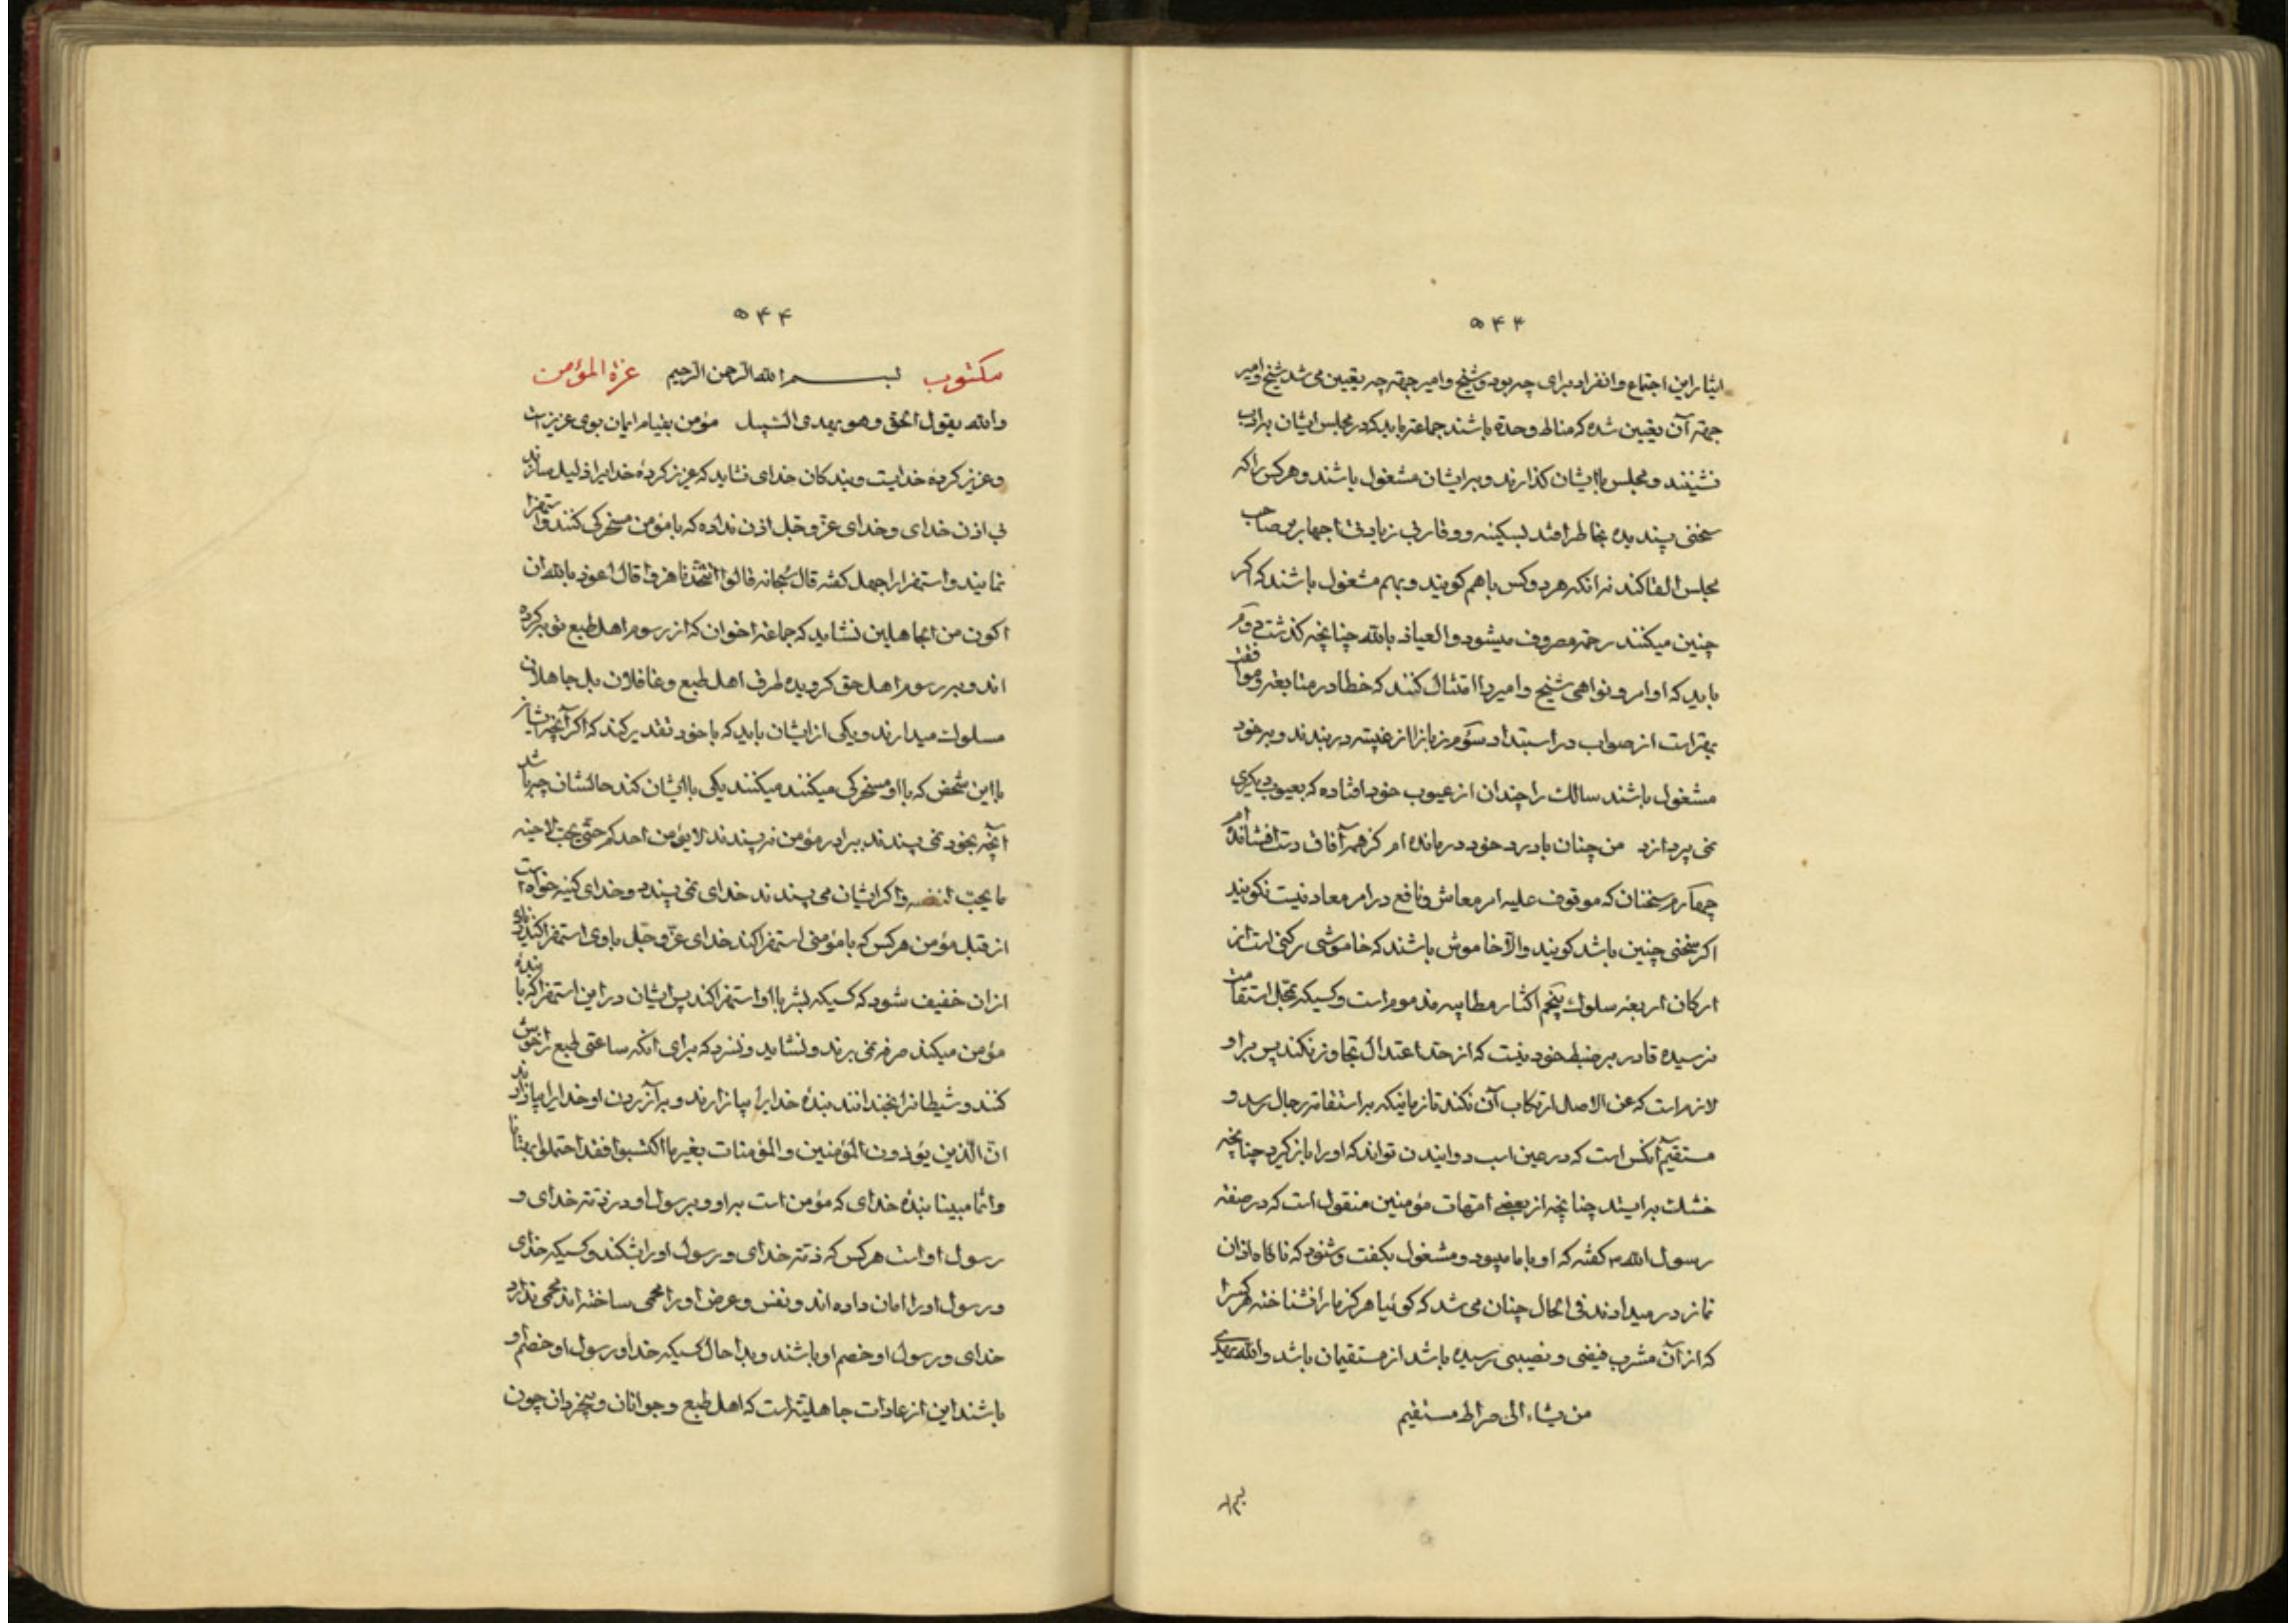 ۵۴۳
ایثار این اجتماع و انفراد برای چه بود و شیخ و امیر جهة چه تعیین می شد شیخ و امیر
جهة آن تعیین شده که مناط وحدة باشند جماعة باید که در مجلس ایشان بادب
نشینند و مجلس باایشان کذارند و برایشان مشغول باشند و هر کس را که
سخنی پسندیده بخاطر افتد بسکینه و وقار بی زیادتی اجهار بر صاحب
مجلس القا کند نه انکه هر دو کس باهم کویند و بهم مشغول باشند که اکر
چنین میکنند رحمة مصروف میشود والعیاذ بالله چنانچه کذشت دوم
باید که اوامر و نواهی شیخ و امیر را امتثال کنند که خطا در متابعة و موافقة
بهتر است از صواب در استبداد سوم زبانرا از غیبت دربندند و بر خود
مشغول باشند سالک را چندان از عیوب خود افتاده که بعیوب دیکری
نمی پردازد من چنان بادرد خود درمانده ام کز همه آفاق دست افشانده ام
چهارم سخنان که موقوف علیه امر معاش و نافع در امر معاد نیست نکویند
اکر سخنی چنین باشد کویند والا خاموش باشند که خاموشی رکنی است از
ارکان اربعه سلوک پنجم اکثار مطایبه مذموم است و کسیکه بمحل استقامت
نرسیده قادر بر ضبط خود نیست که از حد اعتدال تجاوز نکند پس بر او
لازم است که عن الاصل ارتکاب آن نکند تا زمانیکه بر استقامة رجال رسد و
مستقیم آنکس است که در عین اسب دوانیدن تواند که او را باز کیرد چنانچه
خشک بر ایستد چنانچه از بعضی امهات مؤمنین منقول است که در صفة
رسول الله ص کفته که او باما میبود و مشغول بکفت و شنود که ناکاه اذان
نماز در میدادند فی الحال چنان می شد که کوئیا هرکز ما را نشناخته هر کس را
که از آن مشرب فیضی و نصیبی رسیده باشد از مستقیمان باشد والله یهدی
من یشاء الی صراط مستقیم
۵۴۴
مکتوب بسم الله الرحمن الرحیم عزة المؤمن
والله یقول الحق وهو یهدی السبیل مؤمن بقیام ایمان بوی عزیز است
و عزیز کردهٔ خدایست و بندکان خدای نشاید که عزیز کردهٔ خدایرا ذلیل سازند
بی اذن خدای و خدای عز و جل اذن نداده که با مؤمن مسخرکی کنند و استهزا
نمایند و استهزا را جهل کفته قال سبحانه قالوا اتتخذنا هزوا قال اعوذ بالله ان
اکون من الجاهلین نشاید که جماعة اخوان که از رسوم اهل طبع توبه کرده
اند و بر رسوم اهل حق کرویده طرف اهل طبع و غافلان بل جاهلان
مسلوک میدارند و یکی از ایشان باید که باخود تقدیر کند که اکر آنچه ایشان
بااین شخص که بااو مسخرکی میکنند میکنند یکی باایشان کند حالشان چه باشد
آنچه بخود نمی پسندند برادر مؤمن نه پسندند لا یؤمن احدکم حتی یحب لاخیه
ما یحب لنفسه و اکر ایشان می پسندند خدای نمی پسندد و خدای کینه خواه است
از قبل مؤمن هر کس که با مؤمنی استهزا کند خدای عز و جل باوی استهزا کند
ازان خفیف شود که کسیکه بشر بااو استهزا کند پس ایشان در این استهزا که با بندهٔ
مؤمن میکنند صرفه نمی برند و نشاید و نسزد که برای انکه ساعتی طبع را خوش
کنند و شیطانرا بخندانند بندهٔ خدایرا بیازارند و بر آزردن او خدایرا بیازارند
ان الذین یؤذون المؤمنین والمؤمنات بغیر ما اکتسبوا فقد احتملوا بهتانا
واثما مبینا بندهٔ خدای که مؤمن است براو و برسول او در ذمة خدای و
رسول او است هر کس که ذمة خدای و رسول او را بشکند و کسیکه خدای
و رسول او را امان داده اند و نفس و عرض او را محمی ساخته اند محمی ندارد
خدای و رسول او خصم او باشند و بدا حال کسیکه خدا و رسول او خصم او
باشند این از عادات جاهلیة است که اهل طبع و جوانان و بیخردان چون